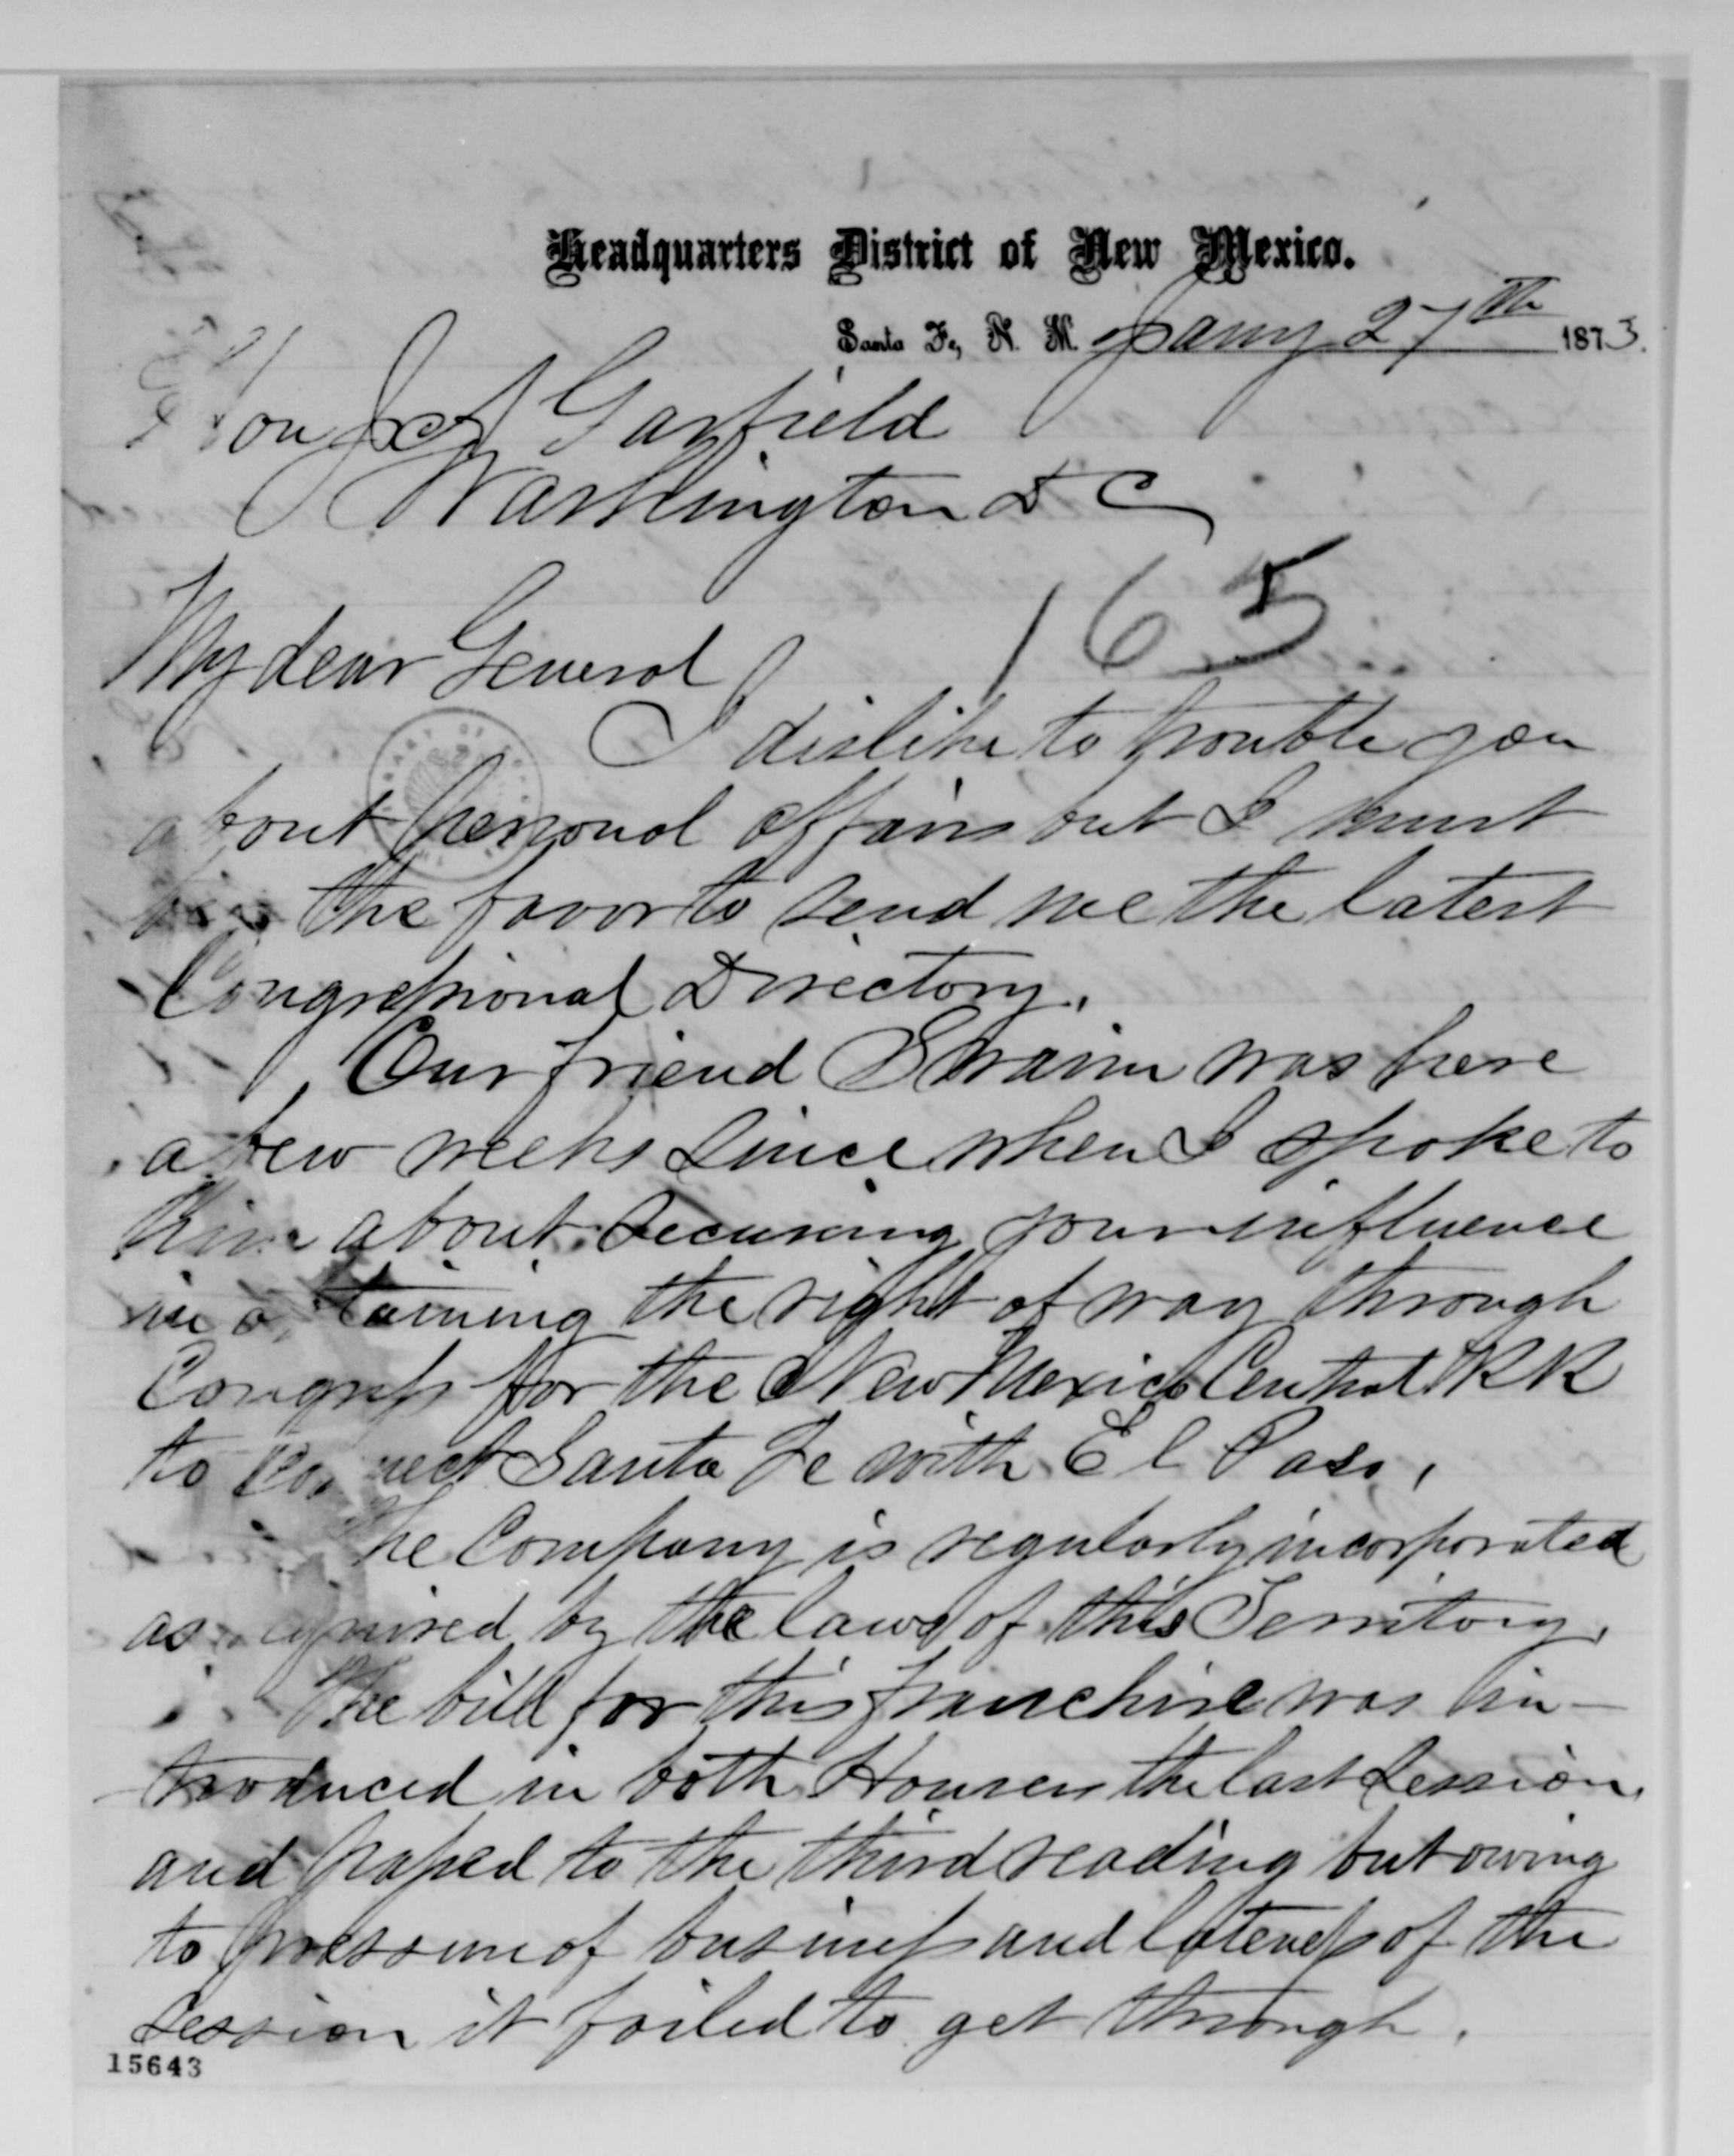 Headquarters District of New Mexico.
Santa Fe, N. M. Jany 27th 1873.
Hon J A Garfield
Washington D C
165
My dear General
I dislike to trouble you
about personal affairs but I must
the favor to send me the latest
Congressional Directory.
Our friend Swaim was here
a few weeks since when I spoke to
him about securing your influence
in obtaining the right of way through
Congress for the New Mexico Central RR
to connect Santa Fe with El Paso.
The Company is regularly incorporated
as required by the laws of this Territory.
The bill for this franchise was in-
troduced in both Houses the last session
and passed to the third reading but owing
to pressure of business and lateness of the
session it failed to get through.
15643